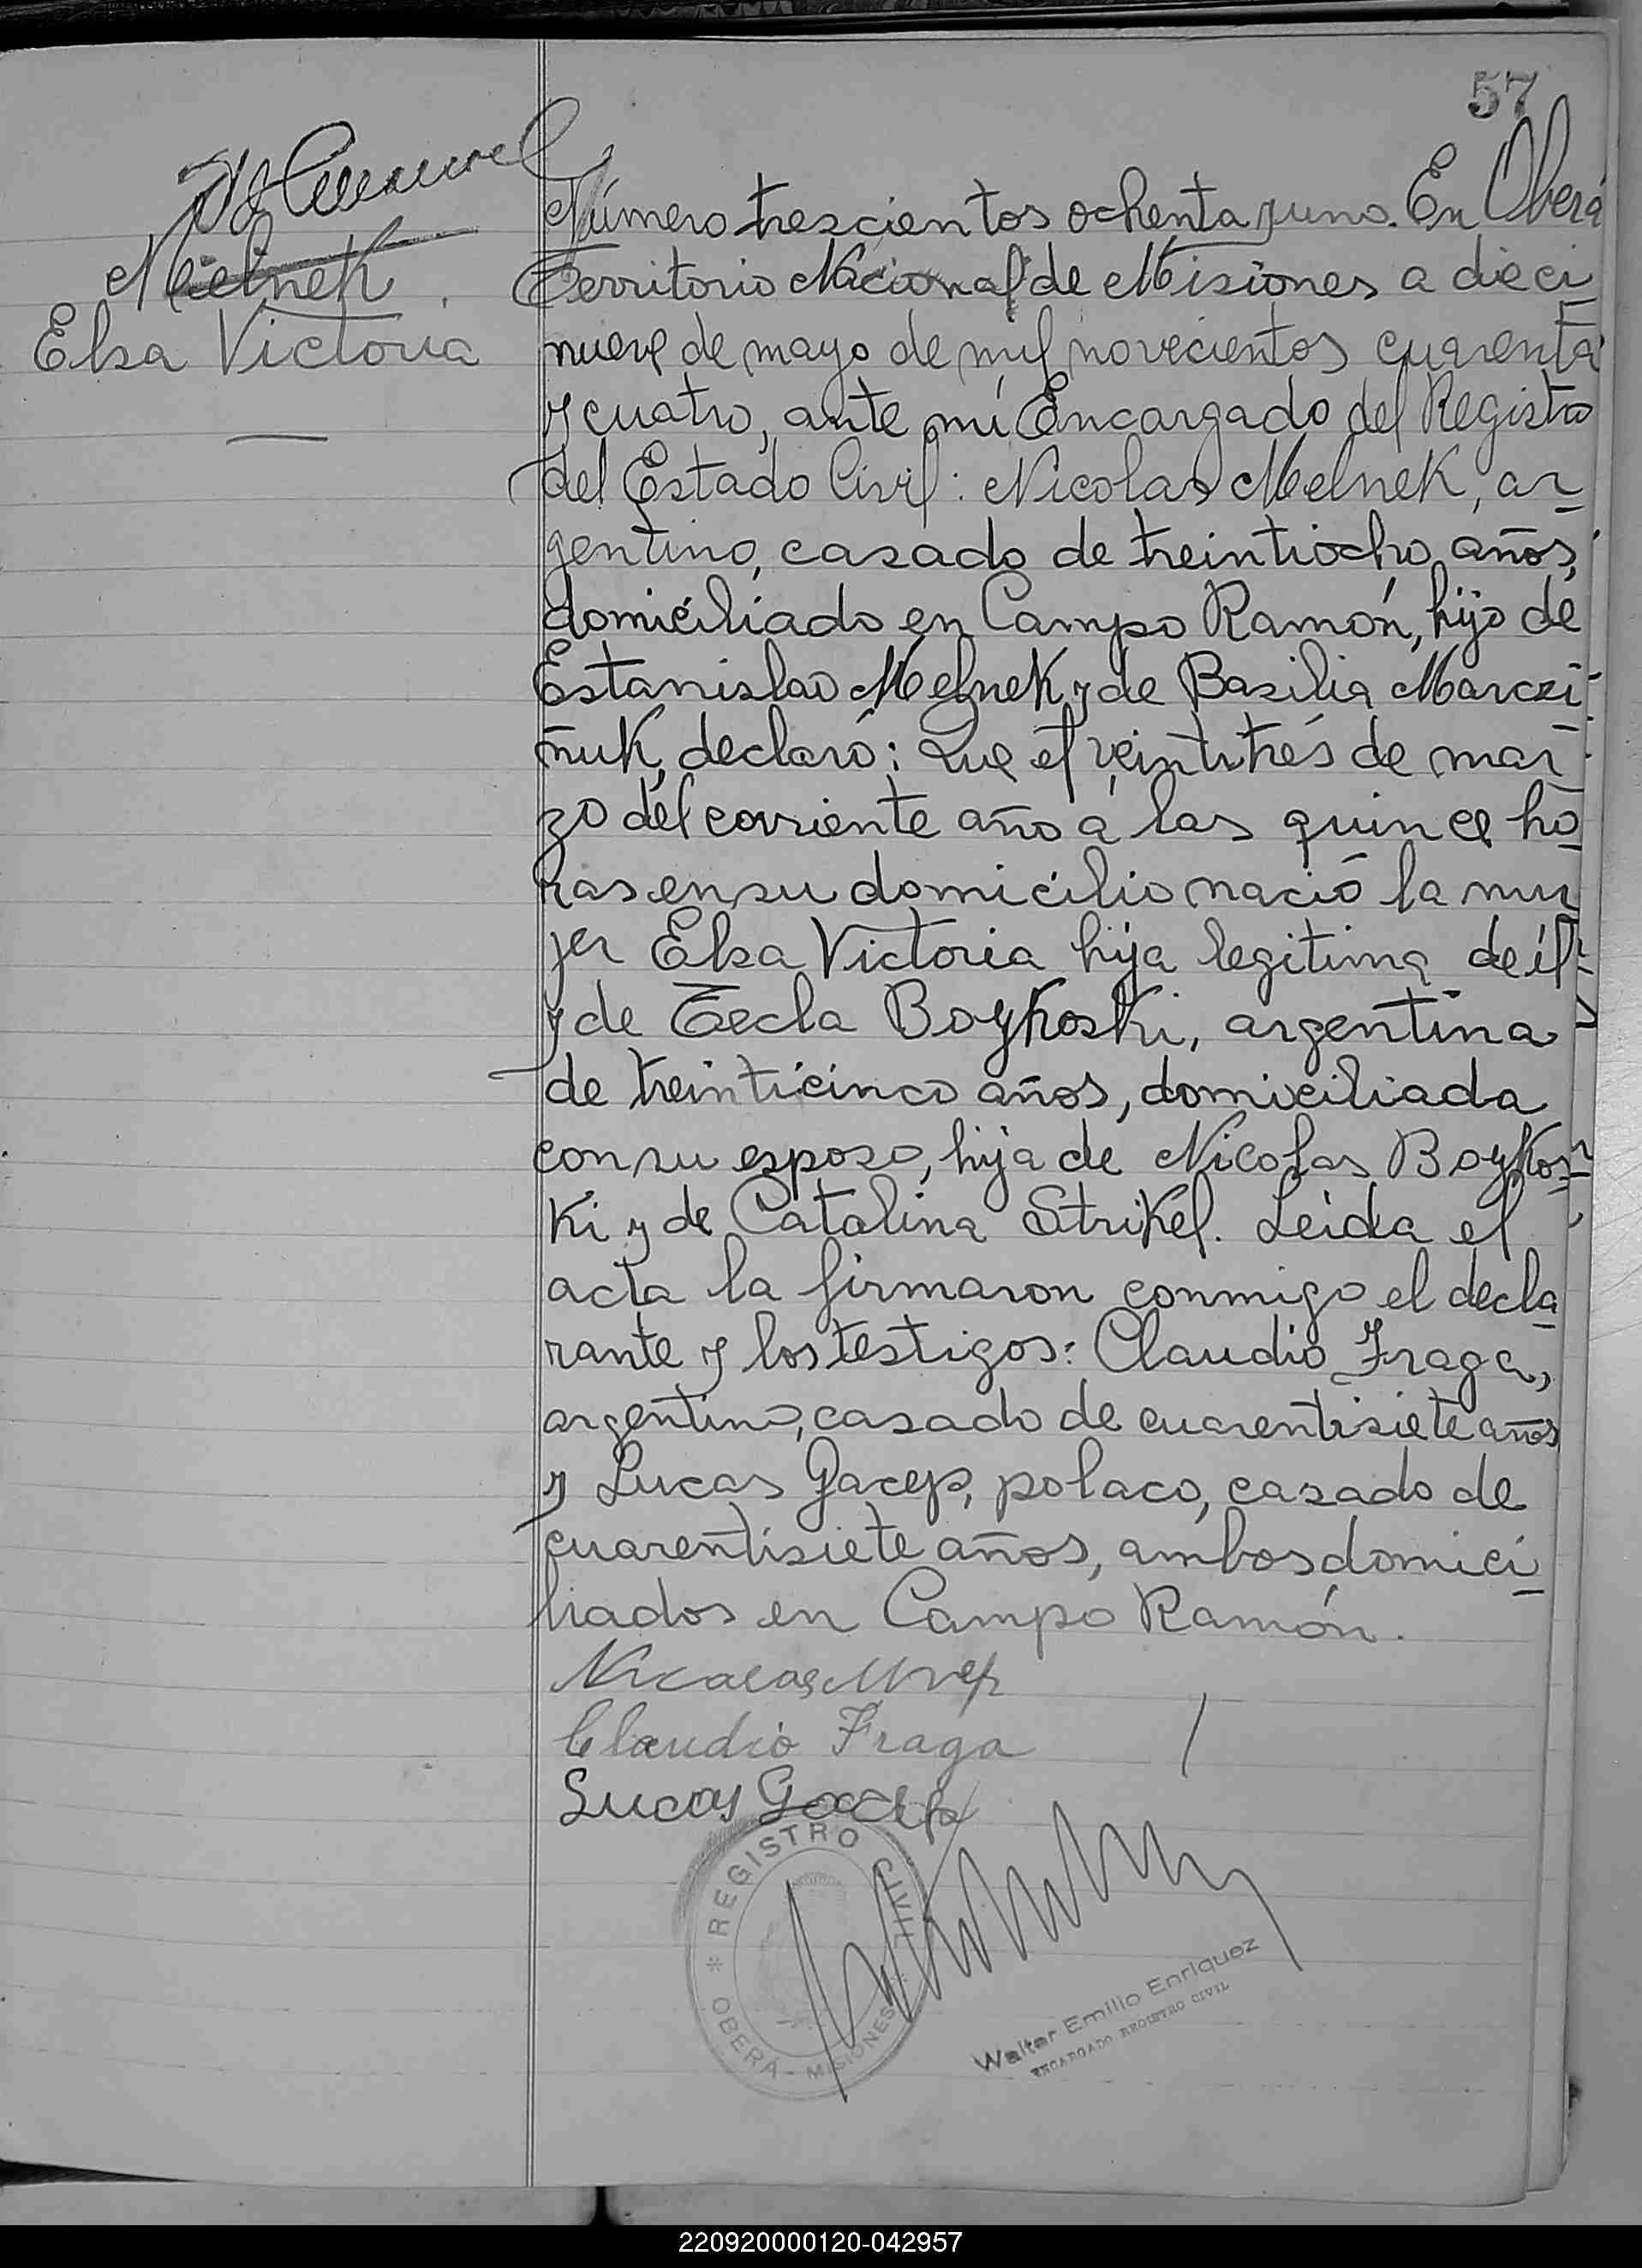 57
Melnek
Elsa Victoria
Número trescientos ochenta y uno. En Oberá
Territorio Nacional de Misiones a dieci
nueve de mayo de mil novecientos cuarenta
y cuatro, ante mí Encargado del Registro
del Estado Civil: Nicolas Melnek, ar
gentino, casado de treintiocho años,
domiciliado en Campo Ramón, hijo de
Estanislao Melnek y de Basilia Marczi
ñuk, declaró: Que el veintitrés de mar
zo del corriente año a las quince ho
ras en su domicilio nació la mu
jer Elsa Victoria hija legitima de él
y de Tecla Boykoski, argentina
de treinticinco años, domiciliada
con su esposo, hija de Nicolas Boykos
ki y de Catalina Strikel. Leida el
acta la firmaron conmigo el decla
rante y los testigos: Claudio Fraga,
argentino, casado de cuarentisiete años
y Lucas Gacep, polaco, casado de
cuarentisiete años, ambos domici
liados en Campo Ramón.
Nicolas
Claudio Fraga
Lucas Gacep
REGISTRO CIVIL
OBERÁ - MISIONES
Walter Emilio Enriquez
ENCARGADO REGISTRO CIVIL
220920000120-042957